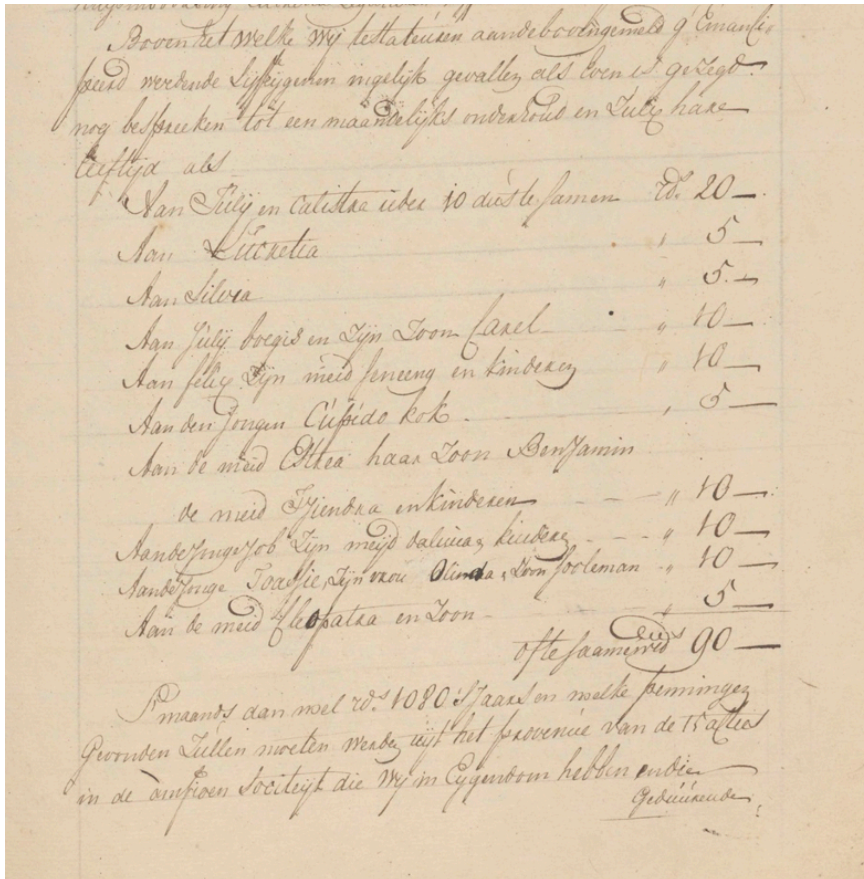 Boven het welke wij testateuren aandebovengemeld g'Emanci
peerd werdende Lijfeijgenen ingelijk gevallen als even is gezegd.
nog bespreeken tot een maandelijks onderhoud en Zulx hare
leeftijd als
Aan Julij en Calistra ieder 10 dus te samen rds. 20 —
Aan Lucretia " 5 —
Aan Silvia " 5 —
Aan Julij boegis en Zijn Zoon Carel " 10 —
Aan felix Zijn meid en kinderen " 10 —
Aan den Jongen Cupido kok " 5 —
Aan de meid haar Zoon Benjamin
de meid en kinderen " 10 —
Aande Jonge Job Zijn meijd kindere " 10 —
Aande Jonge Zijn vrou Zoon " 10 —
Aan de meid Cleopatra en Zoon " 5 —
ofte saamen rds 90 —
S'maands dan wel rds 1080 S'Jaars en welke penningen
Gevonden Zullen moeten werden uijt het provenue van de 15 acties
in de amfioen Societeijt die wij in Eijgendom hebben endie
Geduurende